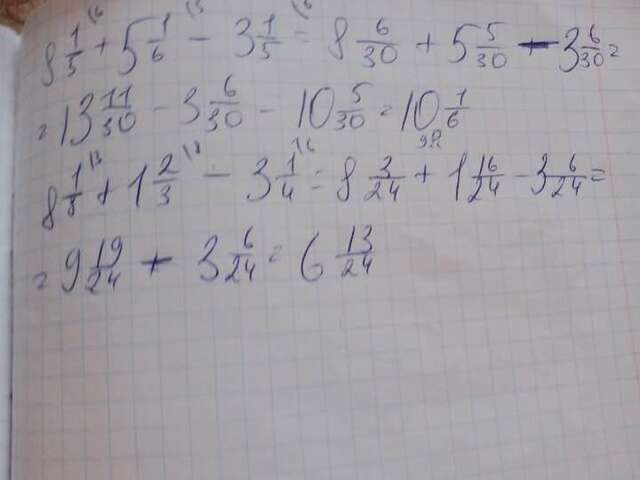 8 1/5 \6 + 5 1/6 \5 - 3 1/5 \6 = 8 6/30 + 5 5/30 - 3 6/30 =
= 13 11/30 - 3 6/30 - 10 5/30 = 10 1/6
8 1/8 \3 + 1 2/3 \8 - 3 1/4 \6 = 8 3/24 + 1 16/24 - 3 6/24 =
= 9 19/24 - 3 6/24 = 6 13/24